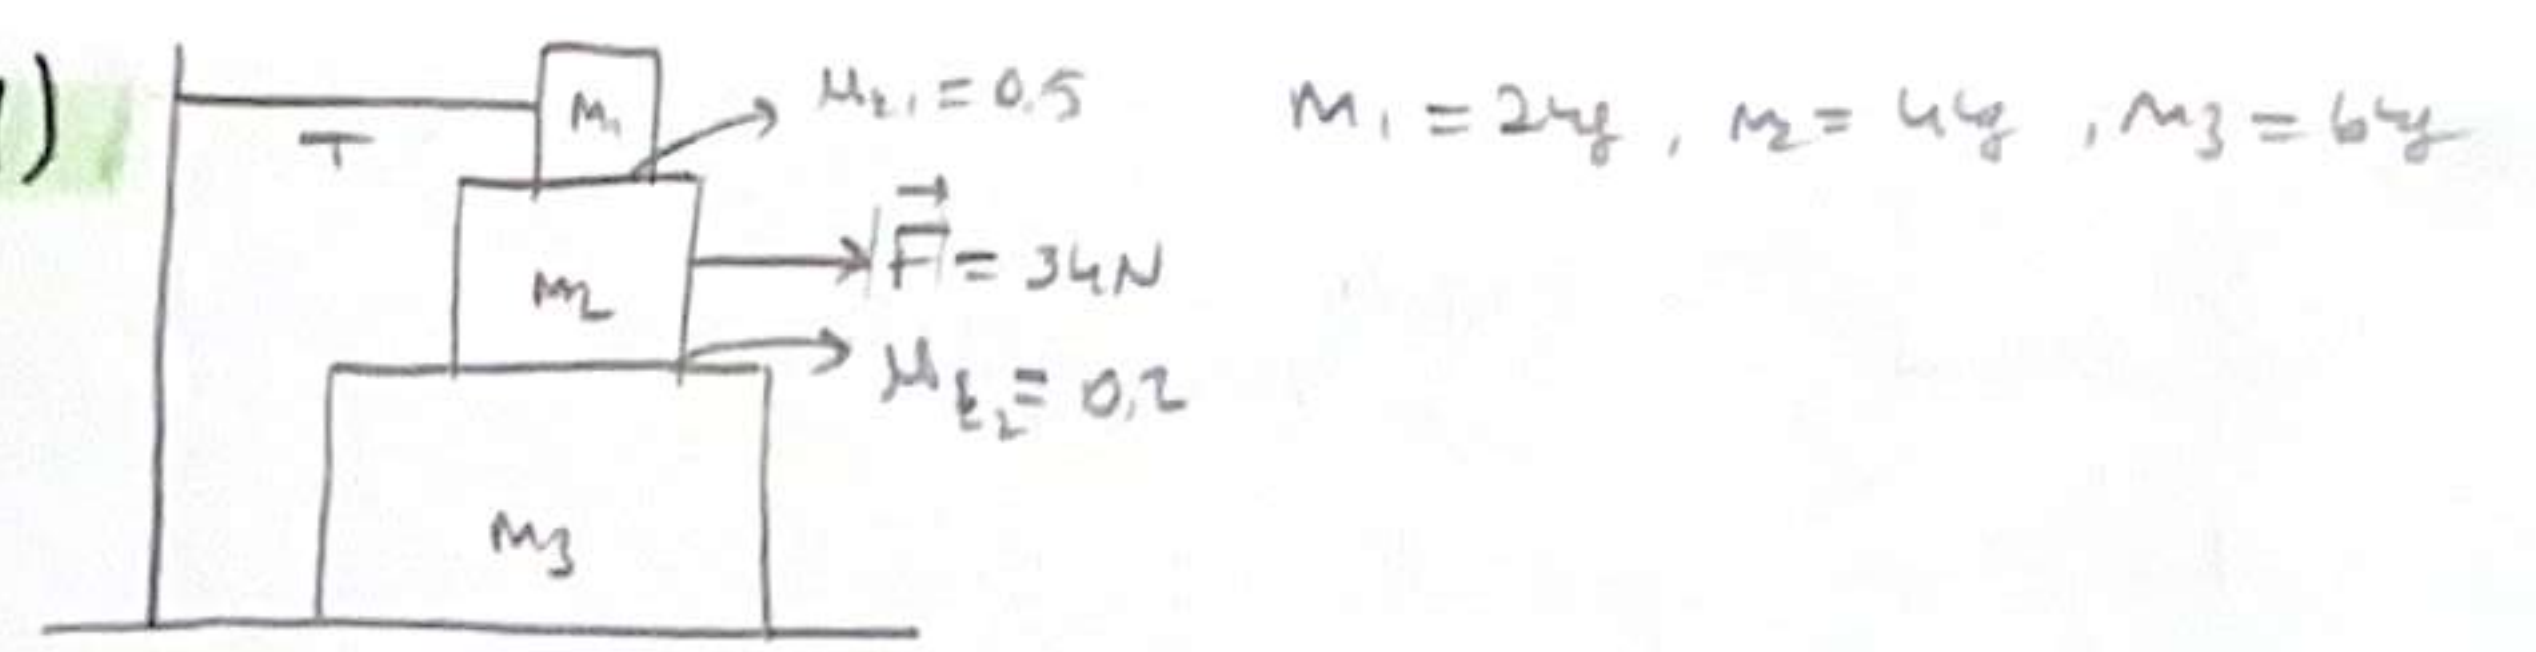 1)
M₁
μₖ₁ = 0.5
M₁ = 2kg, m₂ = 4kg, M₃ = 6kg
T
|F⃗| = 34N
m₂
μₖ₂ = 0,2
M₃